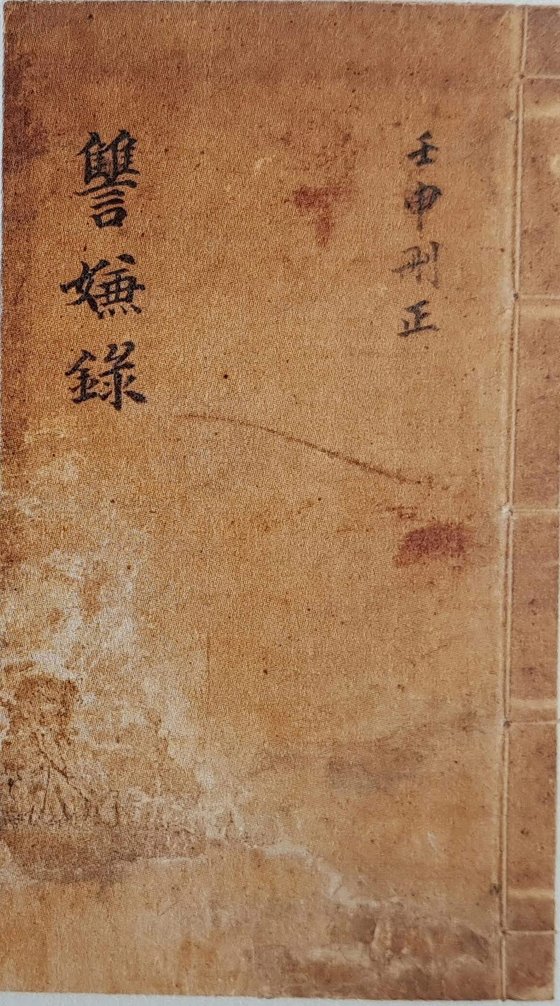 壬申刪正
讐嫌錄